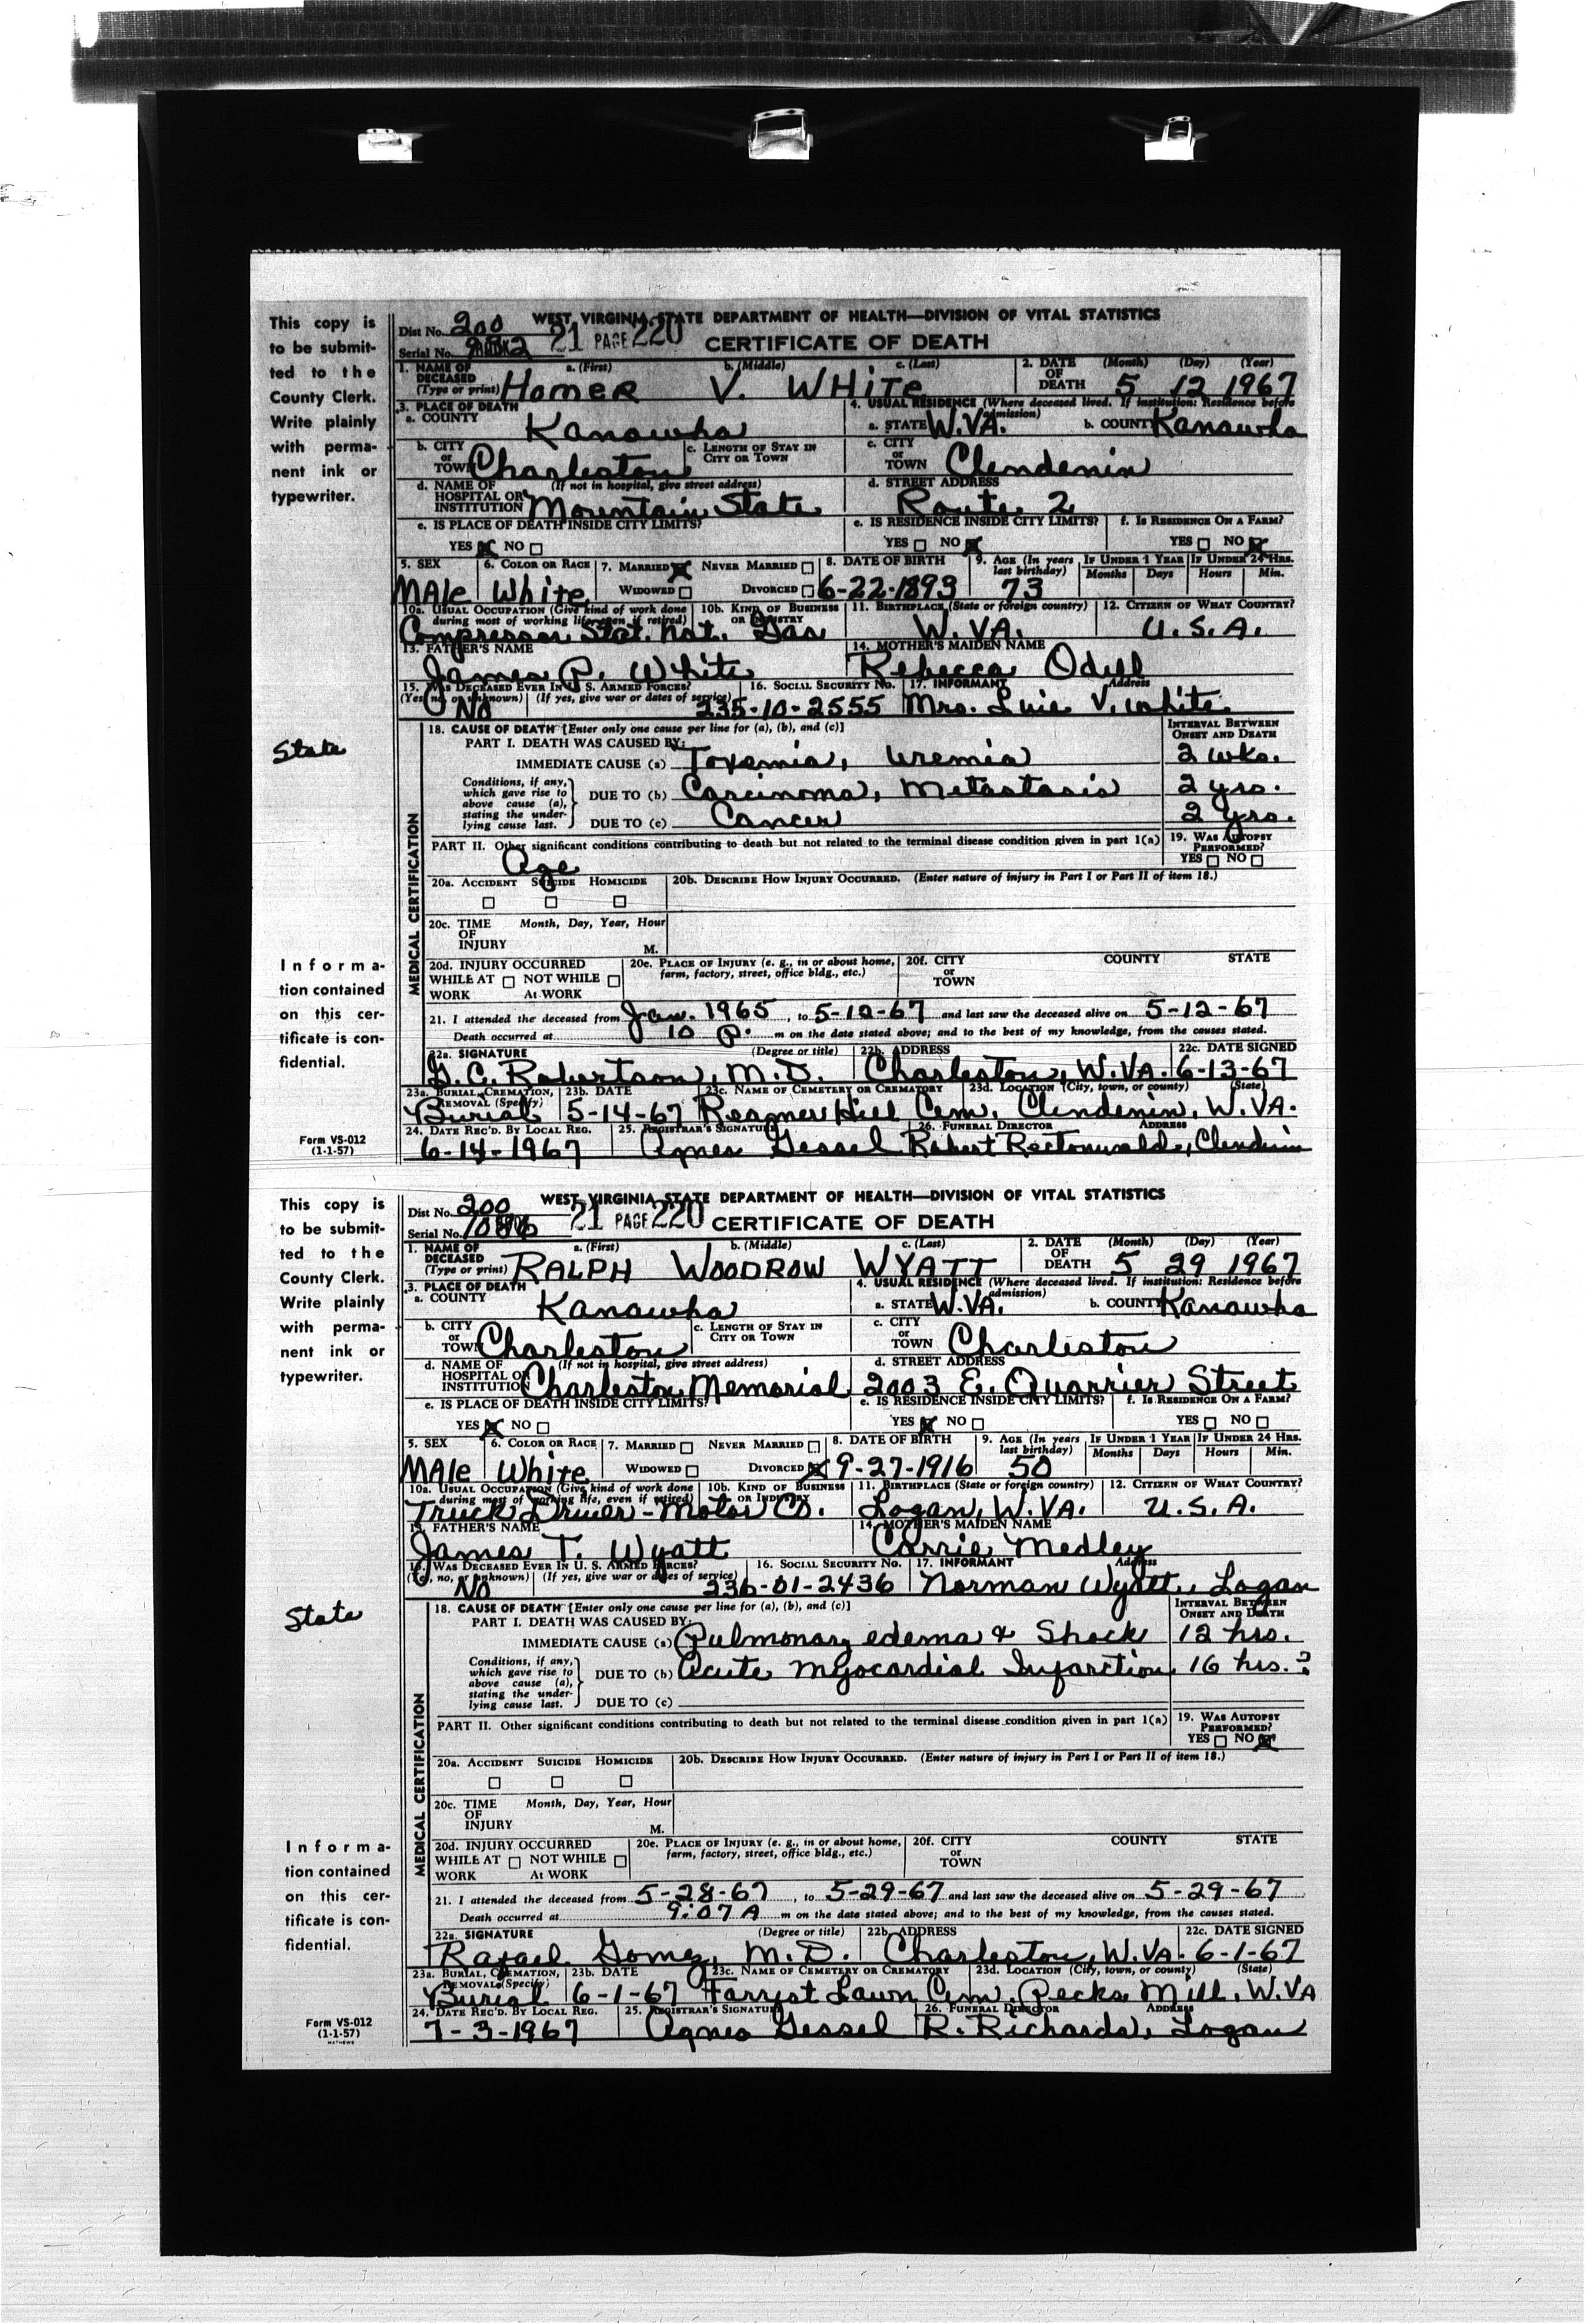 This copy is
to be submit-
ted to the
County Clerk.
Write plainly
with perma-
nent ink or
typewriter.
State
Informa-
tion contained
on this cer-
tificate is con-
fidential.
Form VS-012
(1-1-57)
WEST VIRGINIA STATE DEPARTMENT OF HEALTH—DIVISION OF VITAL STATISTICS
Dist No. 200
Serial No. 21 PAGE 220 CERTIFICATE OF DEATH
1. NAME OF DECEASED (Type or print) a. (First) b. (Middle) c. (Last) HOMER V. WHITE 2. DATE OF DEATH (Month) (Day) (Year) 5 12 1967
3. PLACE OF DEATH 4. USUAL RESIDENCE (Where deceased lived. If institution: Residence before admission)
a. COUNTY Kanawha a. STATE W.VA. b. COUNTY Kanawha
b. CITY or TOWN Charleston c. LENGTH OF STAY IN CITY OR TOWN c. CITY or TOWN Clendenin
d. NAME OF HOSPITAL OR INSTITUTION (If not in hospital, give street address) Mountain State d. STREET ADDRESS Route 2
e. IS PLACE OF DEATH INSIDE CITY LIMITS? e. IS RESIDENCE INSIDE CITY LIMITS? f. IS RESIDENCE ON A FARM?
YES ☒ NO ☐ YES ☐ NO ☒ YES ☐ NO ☒
5. SEX 6. COLOR OR RACE 7. MARRIED ☒ NEVER MARRIED ☐ 8. DATE OF BIRTH 9. AGE (In years last birthday) IF UNDER 1 YEAR IF UNDER 24 HRS.
Months Days Hours Min.
MAle White WIDOWED ☐ DIVORCED ☐ 6-22-1893 73
10a. USUAL OCCUPATION (Give kind of work done during most of working life, even if retired) 10b. KIND OF BUSINESS OR INDUSTRY 11. BIRTHPLACE (State or foreign country) 12. CITIZEN OF WHAT COUNTRY?
Compressor Stat. Nat. Gas W.VA. U.S.A.
13. FATHER'S NAME 14. MOTHER'S MAIDEN NAME
James P. White Rebecca Odell
15. WAS DECEASED EVER IN U. S. ARMED FORCES? 16. SOCIAL SECURITY NO. 17. INFORMANT Address
(Yes, no, or unknown) (If yes, give war or dates of service)
No 235-10-2555 Mrs. Luie V. White
MEDICAL CERTIFICATION
18. CAUSE OF DEATH [Enter only one cause per line for (a), (b), and (c)] INTERVAL BETWEEN ONSET AND DEATH
PART I. DEATH WAS CAUSED BY:
IMMEDIATE CAUSE (a) Toxemia, Uremia 2 wks.
Conditions, if any, which gave rise to above cause (a), stating the under-lying cause last.
DUE TO (b) Carcinoma, Metastasis 2 yrs.
DUE TO (c) Cancer 2 yrs.
PART II. Other significant conditions contributing to death but not related to the terminal disease condition given in part 1(a) 19. WAS AUTOPSY PERFORMED?
Age YES ☐ NO ☐
20a. ACCIDENT SUICIDE HOMICIDE 20b. DESCRIBE HOW INJURY OCCURRED. (Enter nature of injury in Part I or Part II of item 18.)
☐ ☐ ☐
20c. TIME OF INJURY Month, Day, Year, Hour M.
20d. INJURY OCCURRED WHILE AT WORK ☐ NOT WHILE At WORK ☐ 20e. PLACE OF INJURY (e. g., in or about home, farm, factory, street, office bldg., etc.) 20f. CITY or TOWN COUNTY STATE
21. I attended the deceased from Jan. 1965, to 5-12-67 and last saw the deceased alive on 5-12-67
Death occurred at 10 P. m on the date stated above; and to the best of my knowledge, from the causes stated.
22a. SIGNATURE (Degree or title) 22b. ADDRESS 22c. DATE SIGNED
G. C. Robertson, M.D. Charleston, W.VA. 6-13-67
23a. BURIAL, CREMATION, REMOVAL (Specify) 23b. DATE 23c. NAME OF CEMETERY OR CREMATORY 23d. LOCATION (City, town, or county) (State)
Burial 5-14-67 Hill Cem. Clendenin, W.VA.
24. DATE REC'D. BY LOCAL REG. 25. REGISTRAR'S SIGNATURE 26. FUNERAL DIRECTOR ADDRESS
6-14-1967 Agnes Gessel Robert Clendenin
This copy is
to be submit-
ted to the
County Clerk.
Write plainly
with perma-
nent ink or
typewriter.
State
Informa-
tion contained
on this cer-
tificate is con-
fidential.
Form VS-012
(1-1-57)
MATHEWS
WEST VIRGINIA STATE DEPARTMENT OF HEALTH—DIVISION OF VITAL STATISTICS
Dist No. 200
Serial No. 21 PAGE 220 CERTIFICATE OF DEATH
1. NAME OF DECEASED (Type or print) a. (First) b. (Middle) c. (Last) RALPH WOODROW WYATT 2. DATE OF DEATH (Month) (Day) (Year) 5 29 1967
3. PLACE OF DEATH 4. USUAL RESIDENCE (Where deceased lived. If institution: Residence before admission)
a. COUNTY Kanawha a. STATE W.VA. b. COUNTY Kanawha
b. CITY or TOWN Charleston c. LENGTH OF STAY IN CITY OR TOWN c. CITY or TOWN Charleston
d. NAME OF HOSPITAL OR INSTITUTION (If not in hospital, give street address) Charleston Memorial d. STREET ADDRESS 2003 E. Quarrier Street
e. IS PLACE OF DEATH INSIDE CITY LIMITS? e. IS RESIDENCE INSIDE CITY LIMITS? f. IS RESIDENCE ON A FARM?
YES ☒ NO ☐ YES ☒ NO ☐ YES ☐ NO ☐
5. SEX 6. COLOR OR RACE 7. MARRIED ☐ NEVER MARRIED ☐ 8. DATE OF BIRTH 9. AGE (In years last birthday) IF UNDER 1 YEAR IF UNDER 24 HRS.
Months Days Hours Min.
MAle White WIDOWED ☐ DIVORCED ☒ 9-27-1916 50
10a. USUAL OCCUPATION (Give kind of work done during most of working life, even if retired) 10b. KIND OF BUSINESS OR INDUSTRY 11. BIRTHPLACE (State or foreign country) 12. CITIZEN OF WHAT COUNTRY?
Truck Driver - Motor Co. Logan, W.VA. U.S.A.
13. FATHER'S NAME 14. MOTHER'S MAIDEN NAME
James T. Wyatt Carrie Medley
15. WAS DECEASED EVER IN U. S. ARMED FORCES? 16. SOCIAL SECURITY NO. 17. INFORMANT Address
(Yes, no, or unknown) (If yes, give war or dates of service)
No 236-01-2436 Norman Wyatt, Logan
MEDICAL CERTIFICATION
18. CAUSE OF DEATH [Enter only one cause per line for (a), (b), and (c)] INTERVAL BETWEEN ONSET AND DEATH
PART I. DEATH WAS CAUSED BY:
IMMEDIATE CAUSE (a) Pulmonary edema & Shock 12 hrs.
Conditions, if any, which gave rise to above cause (a), stating the under-lying cause last.
DUE TO (b) Acute Myocardial Infarction 16 hrs.?
DUE TO (c)
PART II. Other significant conditions contributing to death but not related to the terminal disease condition given in part 1(a) 19. WAS AUTOPSY PERFORMED?
YES ☐ NO ☒
20a. ACCIDENT SUICIDE HOMICIDE 20b. DESCRIBE HOW INJURY OCCURRED. (Enter nature of injury in Part I or Part II of item 18.)
☐ ☐ ☐
20c. TIME OF INJURY Month, Day, Year, Hour M.
20d. INJURY OCCURRED WHILE AT WORK ☐ NOT WHILE At WORK ☐ 20e. PLACE OF INJURY (e. g., in or about home, farm, factory, street, office bldg., etc.) 20f. CITY or TOWN COUNTY STATE
21. I attended the deceased from 5-28-67, to 5-29-67 and last saw the deceased alive on 5-29-67
Death occurred at 9:07 A m on the date stated above; and to the best of my knowledge, from the causes stated.
22a. SIGNATURE (Degree or title) 22b. ADDRESS 22c. DATE SIGNED
Rafael Gomez, M.D. Charleston, W.VA. 6-1-67
23a. BURIAL, CREMATION, REMOVAL (Specify) 23b. DATE 23c. NAME OF CEMETERY OR CREMATORY 23d. LOCATION (City, town, or county) (State)
Burial 6-1-67 Forrest Lawn Cem. Pecks Mill, W.VA
24. DATE REC'D. BY LOCAL REG. 25. REGISTRAR'S SIGNATURE 26. FUNERAL DIRECTOR ADDRESS
7-3-1967 Agnes Gessel R. Richards, Logan